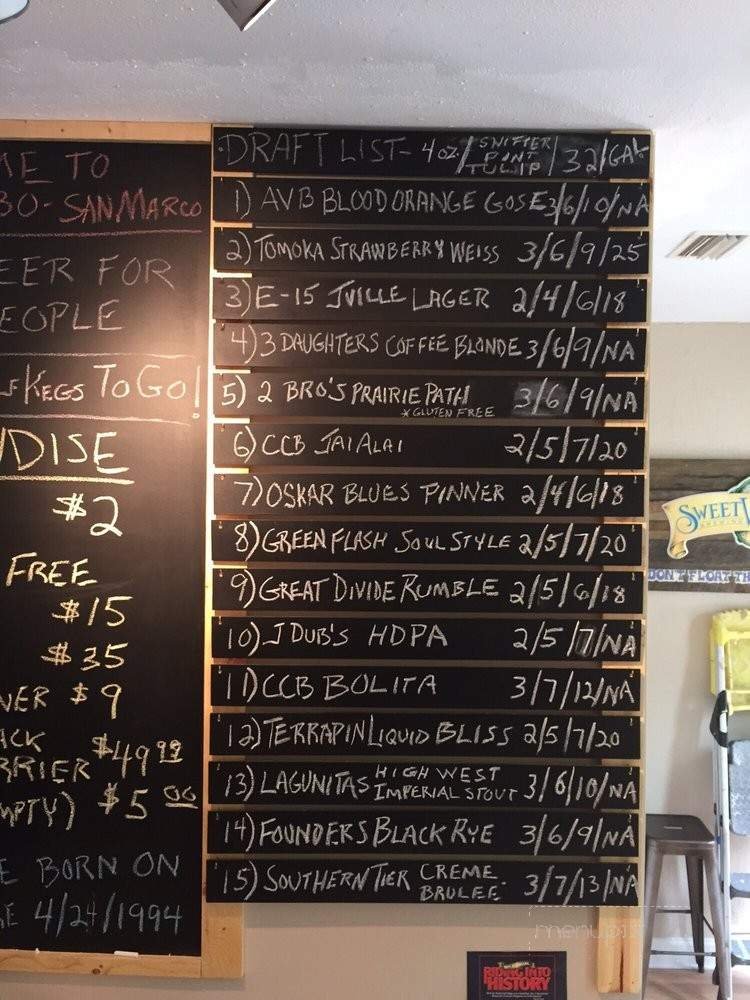 ME TO
BO - SAN MARCO
EER FOR
EOPLE
KEGS TO GO!
DISE
$2
FREE
$15
$35
VER $9
ACK
RRIER $49.99
MPTY) $5.00
E BORN ON
4/24/1994
DRAFT LIST - 4oz / SNIFTER PINT TULIP / 32 / GAL
1) AVB BLOOD ORANGE GOSE 3/6/10/NA
2) TOMOKA STRAWBERRY WEISS 3/6/9/25
3) E-15 JVILLE LAGER 2/4/6/18
4) 3 DAUGHTERS COFFEE BLONDE 3/6/9/NA
5) 2 BRO'S PRAIRIE PATH 3/6/9/NA
*GLUTEN FREE
6) CCB JAI ALAI 2/5/7/20
7) OSKAR BLUES PINNER 2/4/6/18
8) GREEN FLASH SOUL STYLE 2/5/7/20
9) GREAT DIVIDE RUMBLE 2/5/6/18
10) J DUB'S HDPA 2/5/7/NA
11) CCB BOLITA 3/7/12/NA
12) TERRAPIN LIQUID BLISS 2/5/7/20
13) LAGUNITAS HIGH WEST IMPERIAL STOUT 3/6/10/NA
14) FOUNDERS BLACK RYE 3/6/9/NA
15) SOUTHERN TIER CREME BRULEE 3/7/13/NA
SWEET
DON'T FLOAT TH
RIDING INTO
HISTORY
menupix